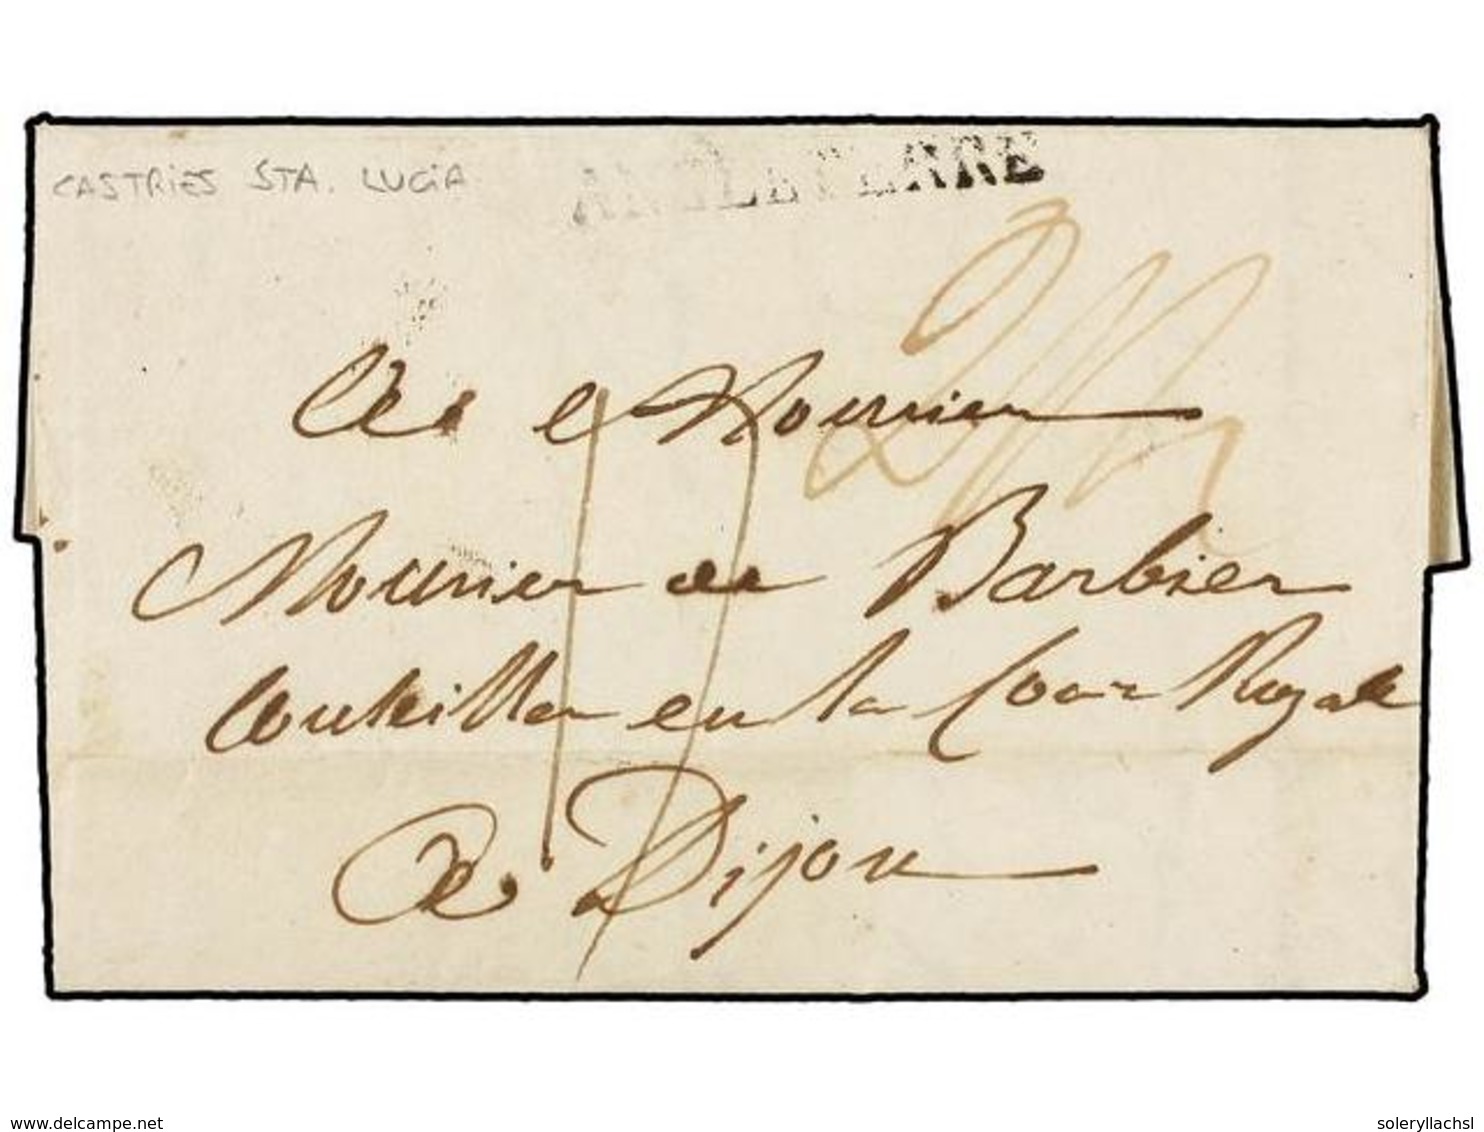 CASTRIES STA. LUCIA
ANGLETERRE
2/2
A Mounier
Mounier de Barbier
Conseiller en la Cour Royale
A Dijon
delcampe.net
soleryllachsl